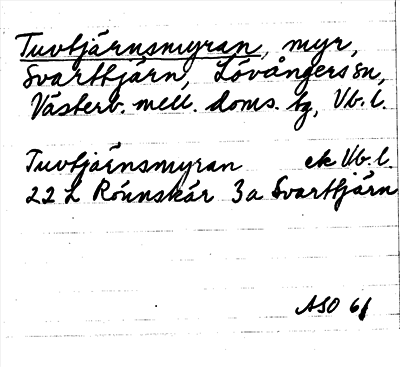 Tuvtjärnsmyran, myr,
Svarttjärn, Lövångers sn,
Västerb. mell. doms. tg, Vb.l.
Tuvtjärnsmyran ek Vb.l.
22 L Rönnskär 3a Svarttjärn
ASO 61